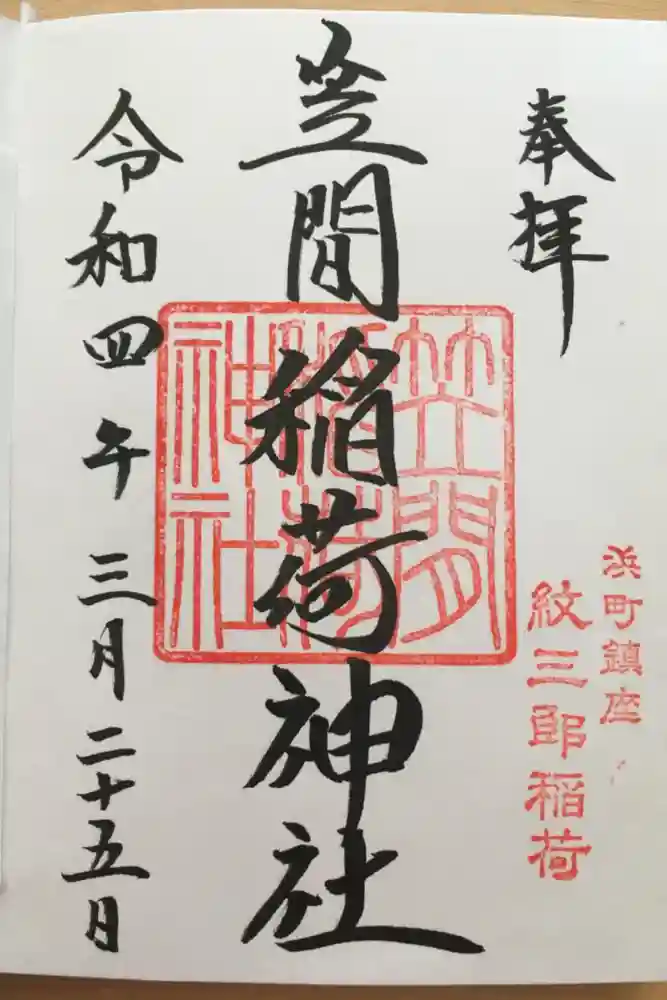 奉拝
浜町鎮座
紋三郎稲荷
笠間稲荷神社
笠間
稲荷
神社
令和四年三月二十五日